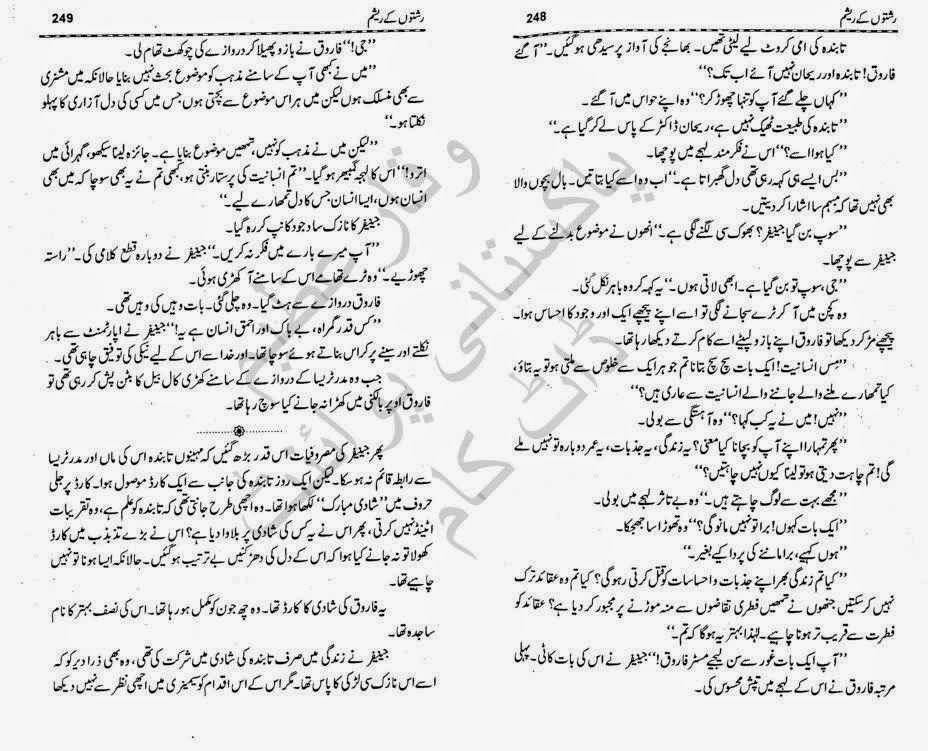 رشتوں کے ریشم 248
تابندہ کی امی کروٹ لیے لیٹی تھیں۔ بھانجے کی آواز پر سیدھی ہو گئیں۔ ”آ گئے
فاروق! تابندہ اور ریحان نہیں آئے اب تک؟“
”کہاں چلے گئے آپ کو تنہا چھوڑ کر؟“ وہ اپنے حواس میں آ گئے۔
”تابندہ کی طبیعت ٹھیک نہیں ہے، ریحان ڈاکٹر کے پاس لے کر گیا ہے۔“
”کیا ہوا اسے؟“ اس نے فکر مند لہجے میں پوچھا۔
”بس ایسے ہی کہہ رہی تھی دل گھبراتا ہے۔“ اب وہ اسے کیا بتاتیں۔ بال بچوں والا
بھی نہیں تھا کہ مبہم سا اشارا کر دیتیں۔
”سوپ بن گیا جینیفر؟ بھوک سی لگنے لگی ہے۔“ انھوں نے موضوع بدلنے کے لیے
جینیفر سے پوچھا۔
”جی، سوپ تو بن گیا ہے۔ ابھی لاتی ہوں۔“ یہ کہہ کر وہ باہر نکل گئی۔
وہ کچن میں آ کر ٹرے سجانے لگی تو اسے اپنے پیچھے ایک اور وجود کا احساس ہوا۔
پیچھے مڑ کر دیکھا تو فاروق اپنے بازو لپیٹے اسے کام کرتے دیکھ رہا تھا۔
”مِس انسانیت! ایک بات سچ سچ بتانا تم جو ہر ایک سے خلوص سے ملتی ہو تو یہ بتاؤ،
کیا تمھارے ملنے والے جاننے والے انسانیت سے عاری ہیں؟“
”نہیں! میں نے یہ کب کہا؟“ وہ آہستگی سے بولی۔
”پھر تمہارا اپنے آپ کو بچانا کیا معنی؟ یہ زندگی، یہ جذبات، یہ عمر دوبارہ تو نہیں ملے
گی! تم چاہت دیتی ہو تو لینا کیوں نہیں چاہتیں؟“
”مجھے بہت سے لوگ چاہتے ہیں۔“ وہ بے تاثر لہجے میں بولی۔
”ایک بات کہوں! برا تو نہیں مانو گی؟“ وہ تھوڑا سا جھجکا۔
”ہوں کہیے، برا ماننے کی پروا کیے بغیر۔“
”کیا تم زندگی بھر اپنے جذبات و احساسات کو قتل کرتی رہو گی؟ کیا تم وہ عقائد ترک
نہیں کر سکتیں جنھوں نے تمھیں فطری تقاضوں سے منہ موڑنے پر مجبور کر دیا ہے؟ عقائد کو
فطرت سے قریب تر ہونا چاہیے۔ لہٰذا بہتر یہ ہو گا کہ تم۔“
”آپ ایک بات غور سے سن لیجیے مسٹر فاروق!“ جینیفر نے اس کی بات کاٹی۔ پہلی
مرتبہ فاروق نے اس کے لہجے میں تپش محسوس کی۔
رشتوں کے ریشم 249
”جی!“ فاروق نے بازو پھیلا کر دروازے کی چوکھٹ تھام لی۔
”میں نے کبھی آپ کے سامنے مذہب کو موضوع بحث نہیں بنایا حالانکہ میں مشنری
سے بھی منسلک ہوں لیکن میں ہر اس موضوع سے بچتی ہوں جس میں کسی کی دل آزاری کا پہلو
نکلتا ہو۔“
”لیکن میں نے مذہب کو نہیں، تمھیں موضوع بنایا ہے۔ جائزہ لینا سیکھو، گہرائی میں
اترو!“ اس کا لہجہ گمبھیر ہو گیا۔ ”تم انسانیت کی پرستار بنتی ہو، کبھی تم نے یہ بھی سوچا کہ میں بھی
انسان ہوں، ایسا انسان جس کا دل تمھارے لیے۔“
جینیفر کا نازک سا وجود کانپ کر رہ گیا۔
”آپ میرے بارے میں فکر نہ کریں۔“ جینیفر نے دوبارہ قطع کلامی کی۔ ”راستہ
چھوڑیے۔“ وہ ٹرے تھامے اس کے سامنے آ کھڑی ہوئی۔
فاروق دروازے سے ہٹ گیا۔ وہ چلی گئی۔ بات وہیں کی وہیں تھی۔
”کس قدر گمراہ، بے باک اور احمق انسان ہے یہ!“ جینیفر نے اپارٹمنٹ سے باہر
نکلتے اور سینے پر کراس بناتے ہوئے سوچا تھا۔ اور خدا سے اس کے لیے نیکی کی توفیق چاہی تھی۔
جب وہ مدر ٹریسا کے دروازے کے سامنے کھڑی کال بیل کا بٹن پش کر رہی تھی تو
فاروق اوپر بالکنی میں کھڑا نہ جانے کیا سوچ رہا تھا۔
پھر جینیفر کی مصروفیات اس قدر بڑھ گئیں کہ مہینوں تابندہ اس کی ماں اور مدر ٹریسا
سے رابطہ قائم نہ ہو سکا۔ لیکن ایک روز تابندہ کی جانب سے ایک کارڈ موصول ہوا۔ کارڈ پر جلی
حروف میں ”شادی مبارک“ لکھا ہوا تھا۔ وہ اچھی طرح جانتی تھی کہ تابندہ کو علم ہے، وہ تقریبات
اٹینڈ نہیں کرتی، پھر اس نے یہ کس کی شادی پر بلاوا دیا ہے؟ اس نے بڑے تذبذب میں کارڈ
کھولا تو نہ جانے کیا ہوا کہ اس کے دل کی دھڑکنیں بے ترتیب ہو گئیں۔ حالانکہ ایسا ہونا تو نہیں
چاہیے تھا۔
یہ فاروق کی شادی کا کارڈ تھا۔ وہ چھ جون کو مکمل ہو رہا تھا۔ اس کی نصف بہتر کا نام
ساجدہ تھا۔
جینیفر نے زندگی میں صرف تابندہ کی شادی میں شرکت کی تھی، وہ بھی ذرا دیر کو کہ
اسے اس نازک سی لڑکی کا پاس تھا۔ مگر اس کے اس اقدام کو سیمینری میں اچھی نظر سے نہیں دیکھا
پاکستانی پوائنٹ
ڈاٹ کام